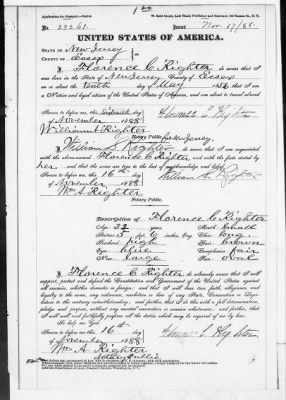 No. 23261. Issued Nov. 17/88.
UNITED STATES OF AMERICA.
STATE OF New Jersey
COUNTY OF Essex
I, Florence C. Righter, do swear that I was
born in the State of New Jersey County of Essex
on or about the tenth day of May
a Native and loyal citizen of the United States of America, and am about to travel abroad.
Sworn to before me, this Sixteenth day
of November 1888
William A Righter
Notary Public
I, William S. Righter, do swear that I am acquainted
with the above-named Florence C. Righter and with the facts stated by
her and that the same are true to the best of my knowledge and belief.
Sworn to before me, this 16th day
of November 1888
Wm A. Righter
William S. Righter
Notary Public.
Description of Florence C. Righter
Age: 32 years Mouth
Stature: 5 ft 6 inches, Eng. Chin: long
Forehead: high Hair: brown
Eyes: blue Complexion: fair
Nose: large Face: oval
I, Florence C. Righter, do solemnly swear that I will
support, protect and defend the Constitution and Government of the United States against
all enemies, whether domestic or foreign; and that I will bear true faith, allegiance, and
loyalty to the same, any ordinance, resolution or law of any State, Convention or Legis-
lature to the contrary notwithstanding; and further, that I do this with a full determination,
pledge and purpose, without any mental reservation or evasion whatsoever; and further, that
I will well and faithfully perform all the duties which may be required of me by law.
So help me God.
Sworn to before me, this 16th day
of November 1888
Wm A. Righter
Notary Public